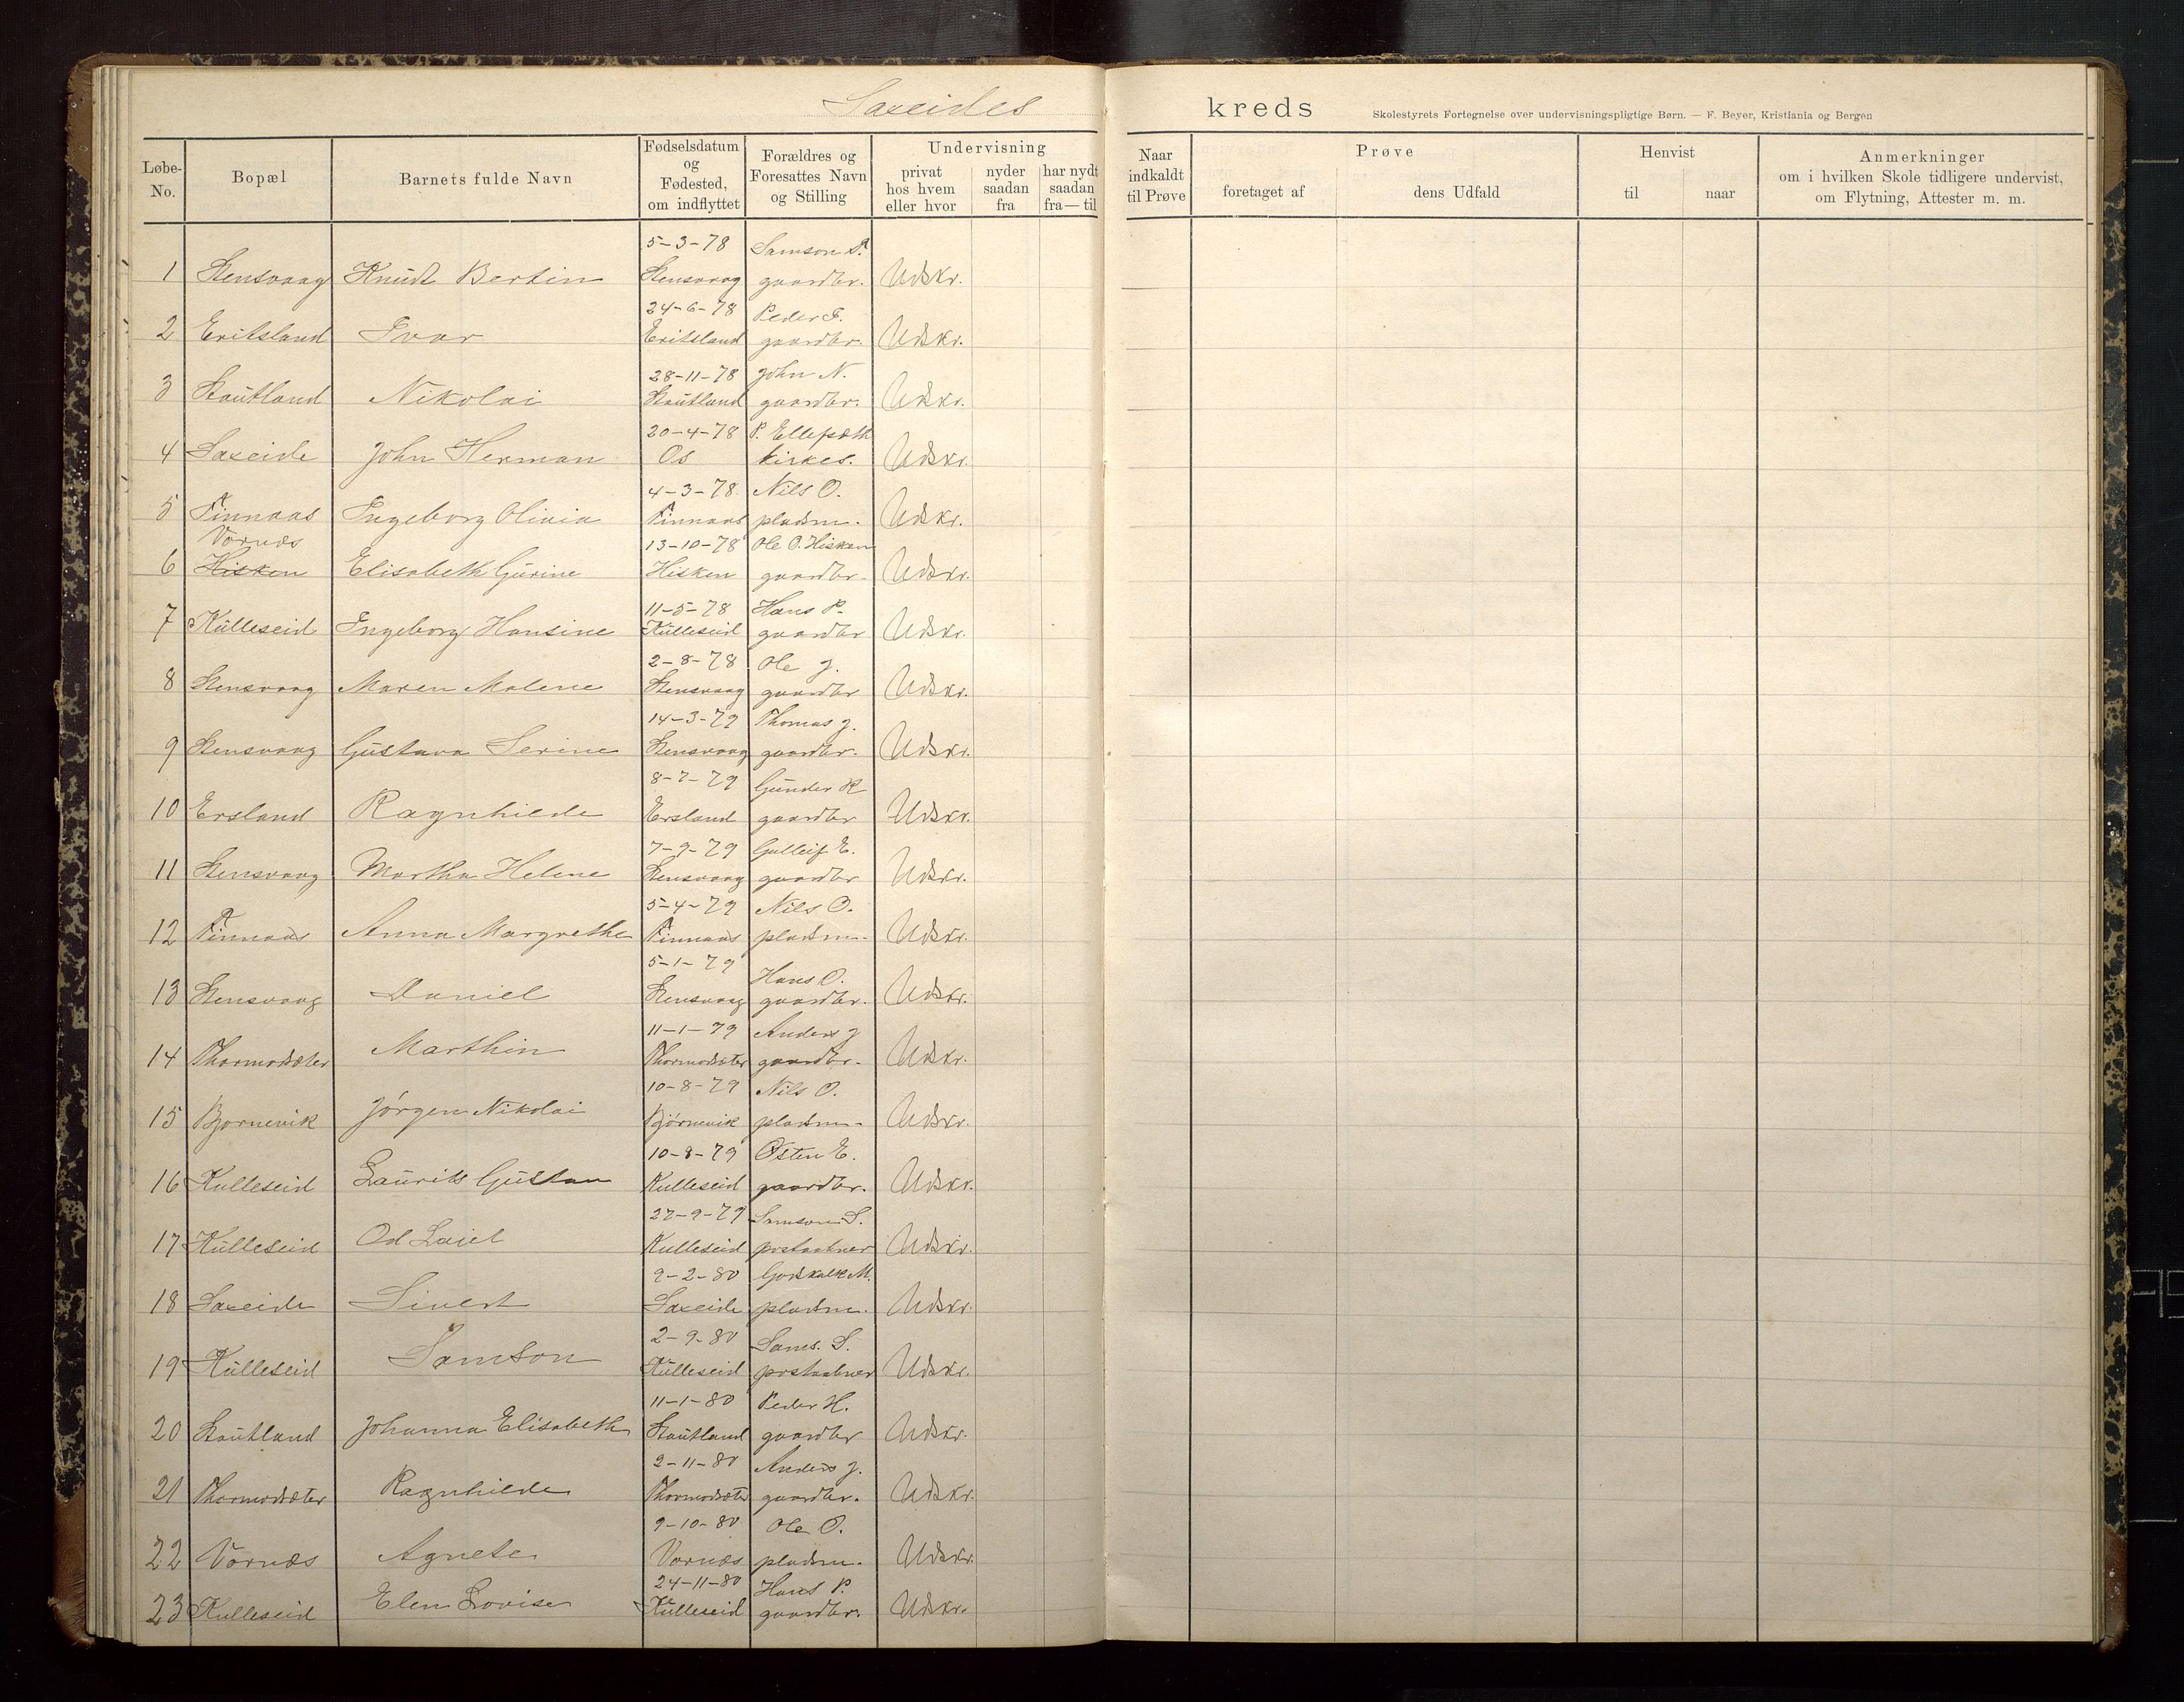 Saxeides kreds
Skolestyrets Fortegnelse over undervisningspligtige Børn. — F. Beyer, Kristiania og Bergen
Løbe-No. Bopæl Barnets fulde Navn Fødselsdatum og Fødested, om indflyttet Forældres og Foresattes Navn og Stilling Undervisning privat hos hvem eller hvor nyder saadan fra har nydt saadan fra—til Naar indkaldt til Prøve Prøve foretaget af dens Udfald Henvist til naar Anmerkninger om i hvilken Skole tidligere undervist, om Flytning, Attester m. m.
5-3-78 Samson P.
1 Stensvaag Knudt Bertin Stensvaag gaardbr. Udskr.
24-6-78 Peder T.
2 Eritsland Ivar Eritsland gaardbr. Udskr.
28-11-78 John N.
3 Stautland Nikolai Stautland gaardbr. Udskr.
20-4-78 P. Ellefsæth
4 Saxeide John Herman Os kirkes. Udskr.
4-3-78 Nils O.
5 Finnaas Ingeborg Olivia Finnaas pladsm. Udskr.
Vornæs 13-10-78 Ole O. Hisken
6 Hisken Elisabeth Gurine Hisken gaardbr. Udskr.
11-5-78 Hans P.
7 Kulleseid Ingeborg Hansine Kulleseid gaardbr Udskr.
2-8-78 Ole J.
8 Stensvaag Maren Malene Stensvaag gaardbr Udskr.
14-3-79 Thomas J.
9 Stensvaag Gustava Serine Stensvaag gaardbr. Udskr.
8-7-79 Gunder K
10 Ersland Ragnhilde Ersland gaardbr Udskr.
7-9-79 Gulleif E.
11 Stensvaag Martha Helene Stensvaag gaardbr Udskr.
5-4-79 Nils O.
12 Finnaas Anna Margrethe Finnaas pladsm. Udskr.
5-1-79 Hans O.
13 Stensvaag Daniel Stensvaag gaardbr. Udskr.
11-1-79 Anders J
14 Thormodsæter Marthin Thormodsæter gaardbr. Udskr.
10-8-79 Nils O.
15 Bjornevik Jörgen Nikolai Björnevik pladsm. Udskr.
10-8-79 Østen E.
16 Kulleseid Laurits Gustav Kulleseid gaardbr. Udskr.
27-9-79 Samson S.
17 Kulleseid Od Kulleseid postaabner Udskr.
9-2-80 Godskalk M.
18 Saxeide Sivert Saxeide pladsm. Udskr.
2-9-80 Sams. S.
19 Kulleseid Samson Kulleseid postaabner Udskr.
11-1-80 Peder H.
20 Stautland Johanna Elisabeth Stautland gaardbr Udskr.
2-11-80 Anders J.
21 Thormodsæter Ragnhilde Thormodsæter gaardbr. Udskr.
9-10-80 Ole O.
22 Vornæs Agnete Vornæs pladsm. Udskr.
24-11-80 Hans P.
23 Kulleseid Elen Lovise Kulleseid gaardbr. Udskr.